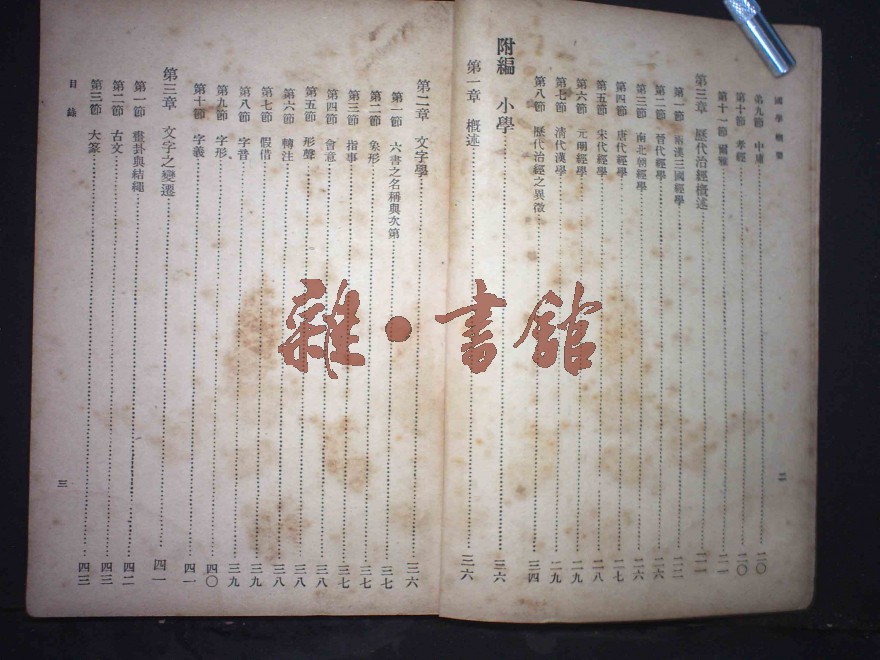 國學概要
第九節 中庸 二〇
第十節 孝經 二〇
第十一節 爾雅 二一
第三章 歷代治經概述 二二
第一節 兩漢三國經學 二二
第二節 晉代經學 二六
第三節 南北朝經學 二六
第四節 唐代經學 二七
第五節 宋代經學 二八
第六節 元明經學 二九
第七節 清代漢學 二九
第八節 歷代治經之異徵 三四
附編 小學 三六
第一章 概述 三六
二
第二章 文字學 三六
第一節 六書之名稱與次第 三七
第二節 象形 三七
第三節 指事 三七
第四節 會意 三八
第五節 形聲 三八
第六節 轉注 三八
第七節 假借 三九
第八節 字音 三九
第九節 字形 三九
第十節 字義 四〇
第三章 文字之變遷 四一
第一節 畫卦與結繩 四二
第二節 古文 四三
第三節 大篆 四三
目錄
三
雜·書館